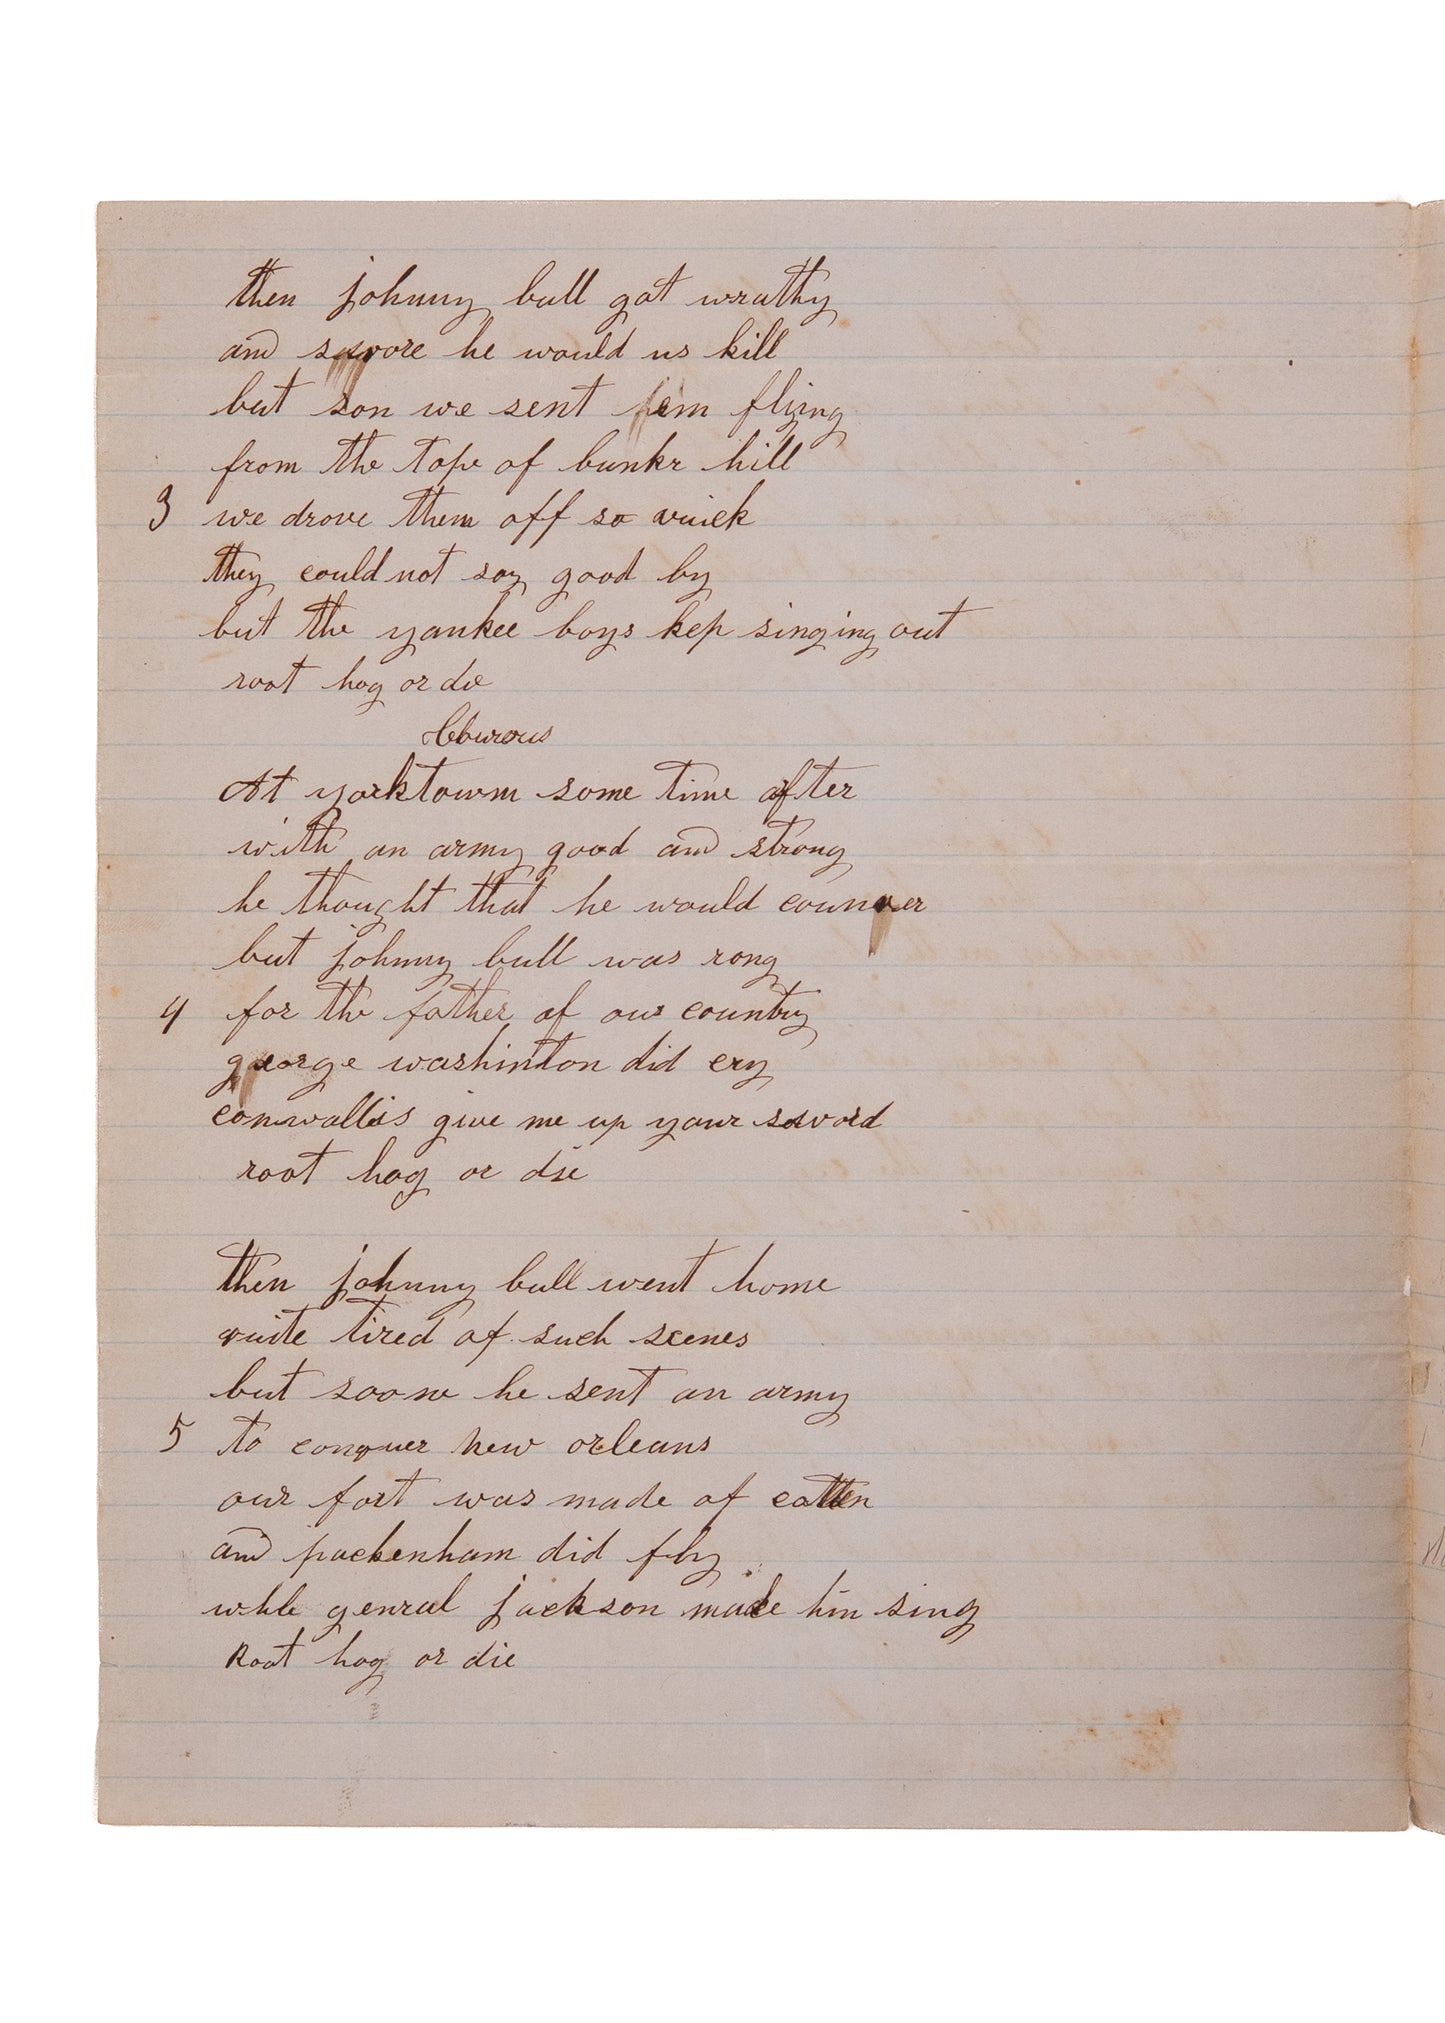 then johnny bull got wrathy
and swore he would us kill
but son we sent em flying
from the tope of bunkr hill
3 we drove them off so quick
they could not say good by
but the yankee boys kep singing out
root hog or die
Chourous
At yorktown some time after
with an army good and strong
he thought that he would counquer
but johnny bull was rong
4 for the father of our country
george washinton did cry
conwallis give me up your sword
root hog or die
then johnny bull went home
quite tired of such scenes
but soone he sent an army
5 to conquer new orleans
our fort was made of cotten
and packenham did fly
while genral jackson made him sing
Root hog or die